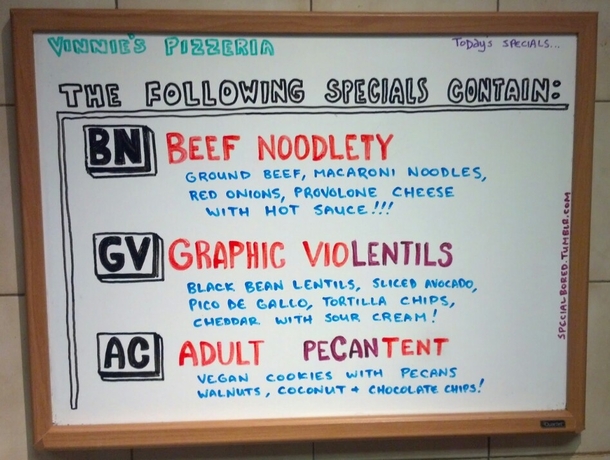 VINNIE'S PIZZERIA
TODAY'S SPECIALS...
THE FOLLOWING SPECIALS CONTAIN:
BN BEEF NOODLETY
GROUND BEEF, MACARONI NOODLES,
RED ONIONS, PROVOLONE CHEESE
WITH HOT SAUCE!!!
GV GRAPHIC VIOLENTILS
BLACK BEAN LENTILS, SLICED AVOCADO,
PICO DE GALLO, TORTILLA CHIPS,
CHEDDAR WITH SOUR CREAM!
AC ADULT PECANTENT
VEGAN COOKIES WITH PECANS
WALNUTS, COCONUT + CHOCOLATE CHIPS!
SPECIALBORED.TUMBLR.COM